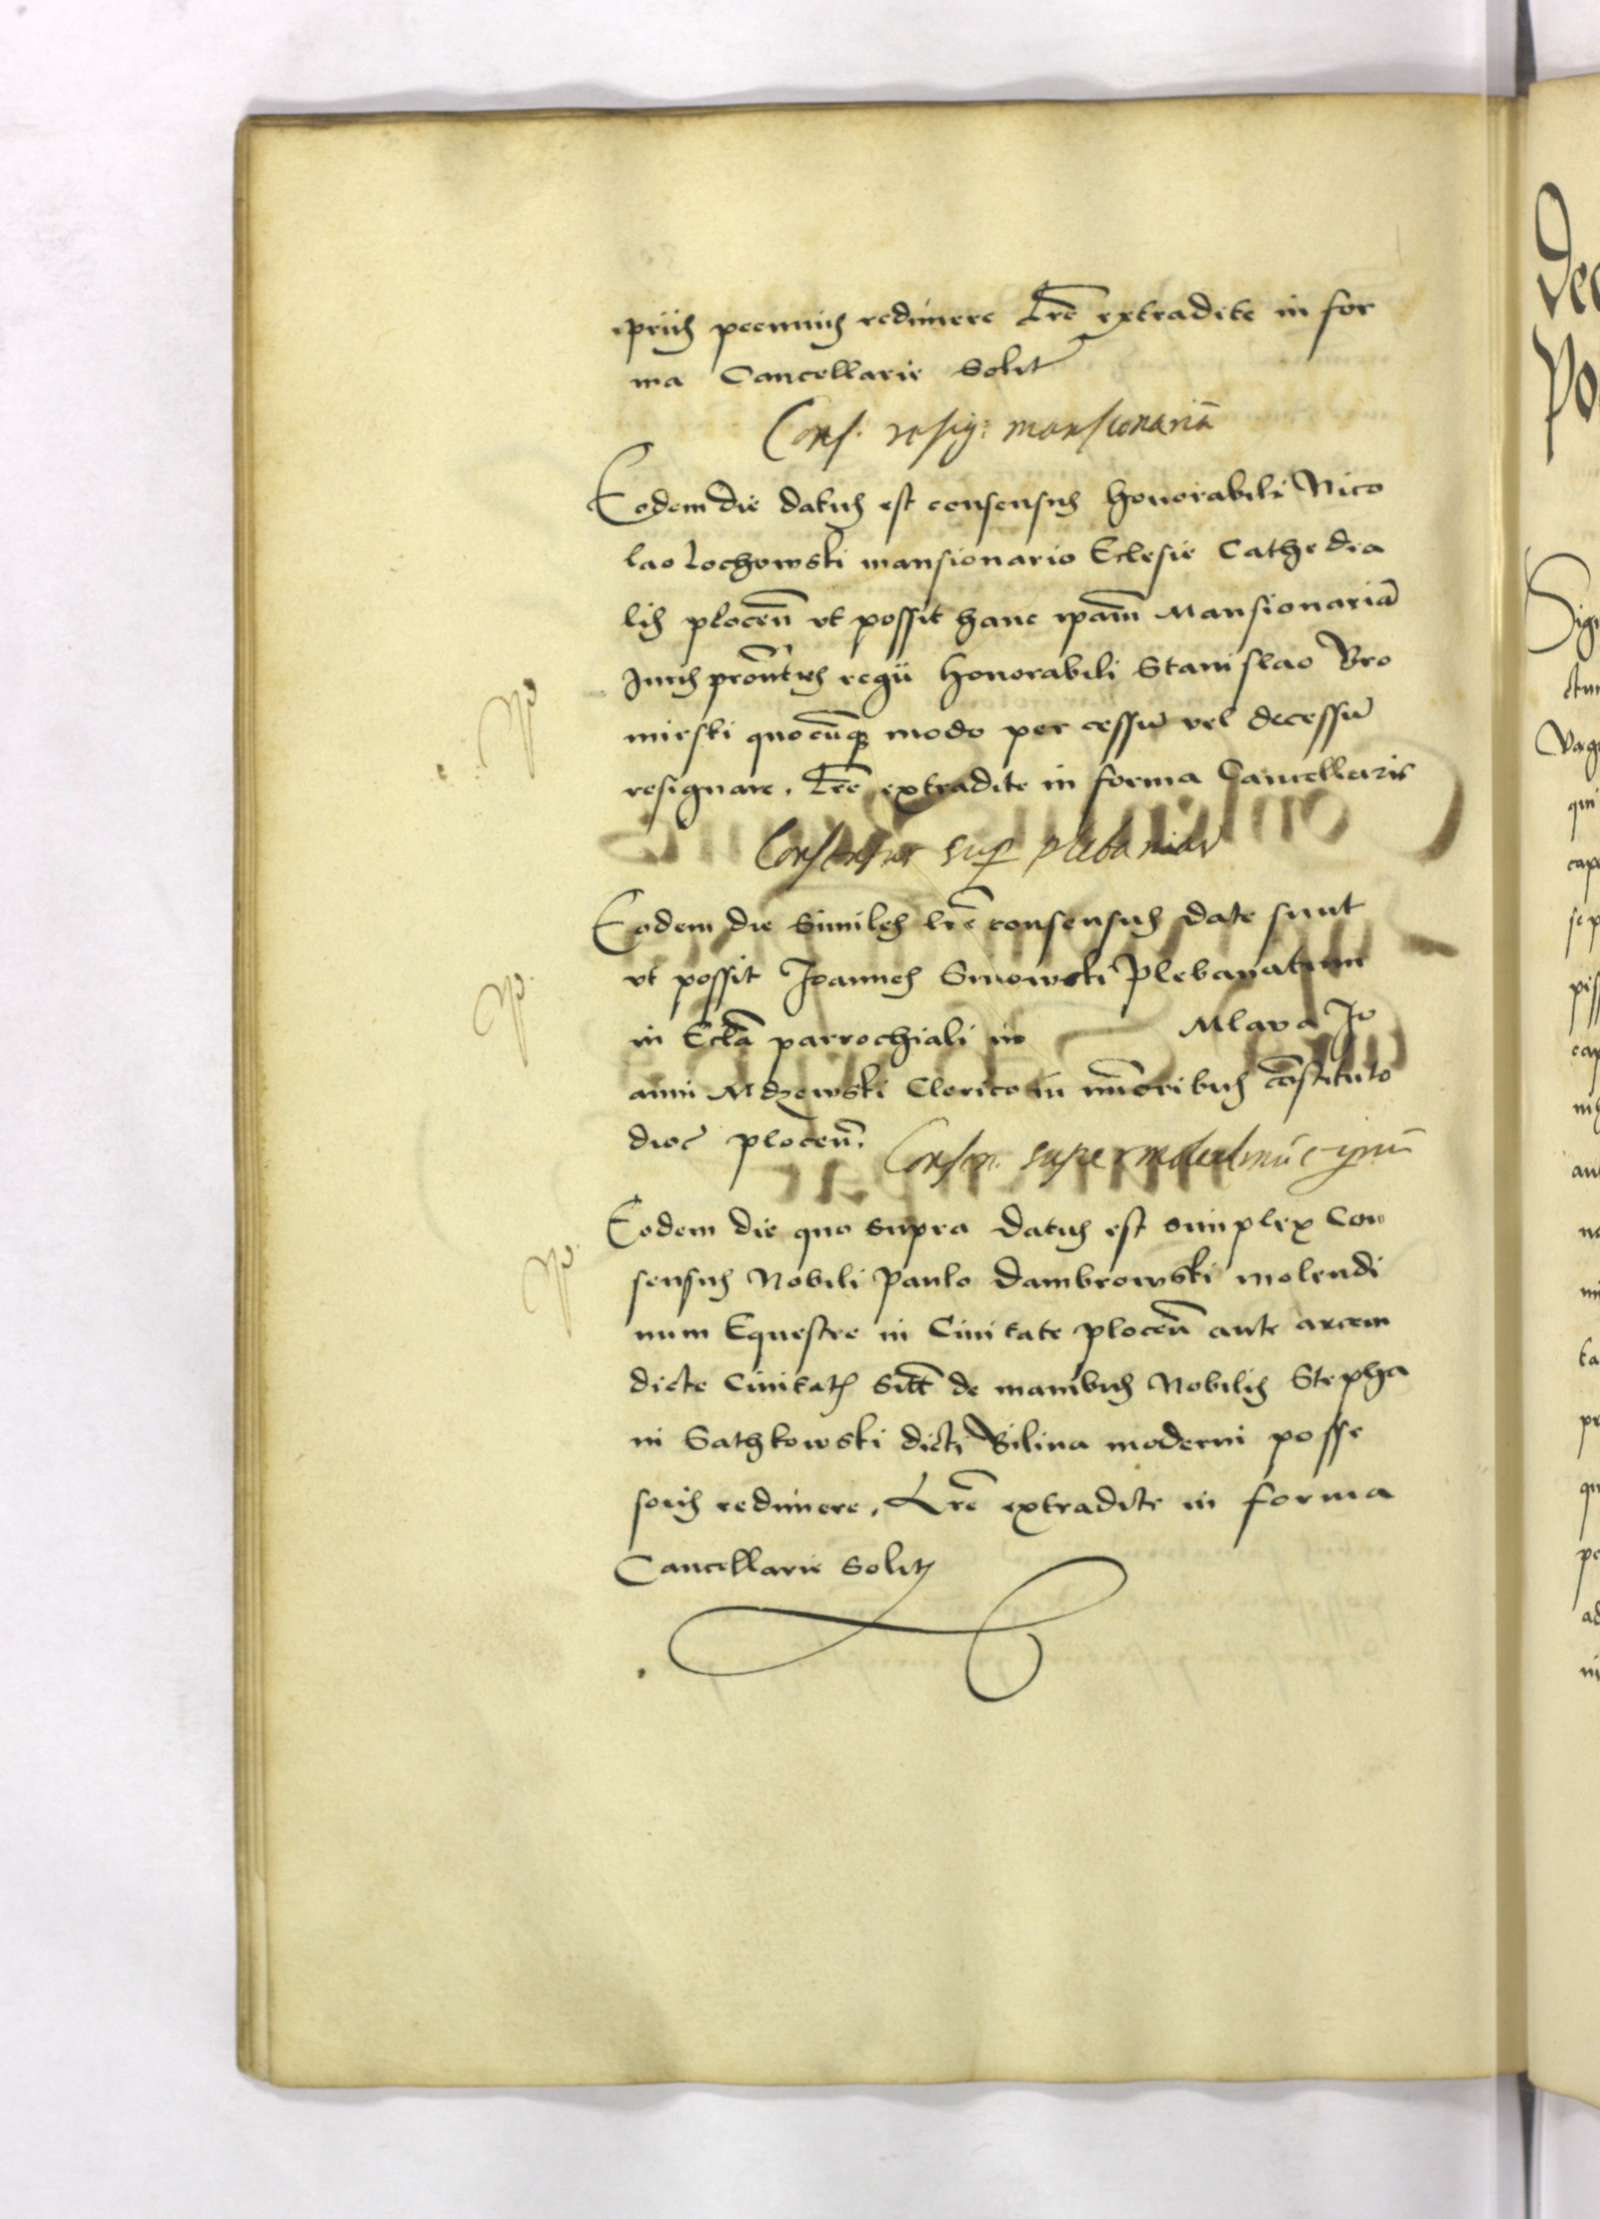 ipsius pecuniis redimere Lre extradite in for
ma Cancellarie Solit
Cons. resig: mansionariā
Eodem die datus est consensus honorabili Nico
lao Lochowski mansionario Eclesie Cathedra
lis plocen̄ vt possit hanc ipam̄ Mansionariā
Juris pron̄tus regii honorabili Stanislao Bro
mirski quocūq̨ modo per cessū vel decessū
resignare. Lre extradite in forma Cancellarie
Consensus sup plebaniā
Eodem die Similes lre consensus date sunt
vt possit Joannes Smowski Plebanatum
in Eccla parrochiali in Mlava Jo
anni Mdzewski Clerico in minoribus cōstituto
dioc plocen̄.
Consen. super molendinū equū
Eodem die quo supra datus est simplex Con
sensus Nobili Paulo Dambrowski molendi
num Equestre in Civitate plocen̄ ante arcem
dicte Civitatis Sitt de manibus Nobilis Stepha
ni Sathkowski dicti Bilina moderni posse
soris redimere. Lre extradite in forma
Cancellarie Solit